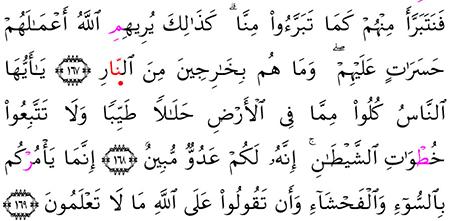 فَنَتَبَرَّأَ مِنْهُمْ كَمَا تَبَرَّءُوا۟ مِنَّا ۗ كَذَٰلِكَ يُرِيهِمِ ٱللَّهُ أَعْمَـٰلَهُمْ
حَسَرَٰتٍ عَلَيْهِمْ ۖ وَمَا هُم بِخَـٰرِجِينَ مِنَ ٱلنَّارِ ﴿١٦٧﴾ يَـٰٓأَيُّهَا
ٱلنَّاسُ كُلُوا۟ مِمَّا فِى ٱلْأَرْضِ حَلَـٰلًا طَيِّبًا وَلَا تَتَّبِعُوا۟
خُطْوَٰتِ ٱلشَّيْطَـٰنِ ۚ إِنَّهُۥ لَكُمْ عَدُوٌّ مُّبِينٌ ﴿١٦٨﴾ إِنَّمَا يَأْمُرْكُم
بِٱلسُّوٓءِ وَٱلْفَحْشَآءِ وَأَن تَقُولُوا۟ عَلَى ٱللَّهِ مَا لَا تَعْلَمُونَ ﴿١٦٩﴾